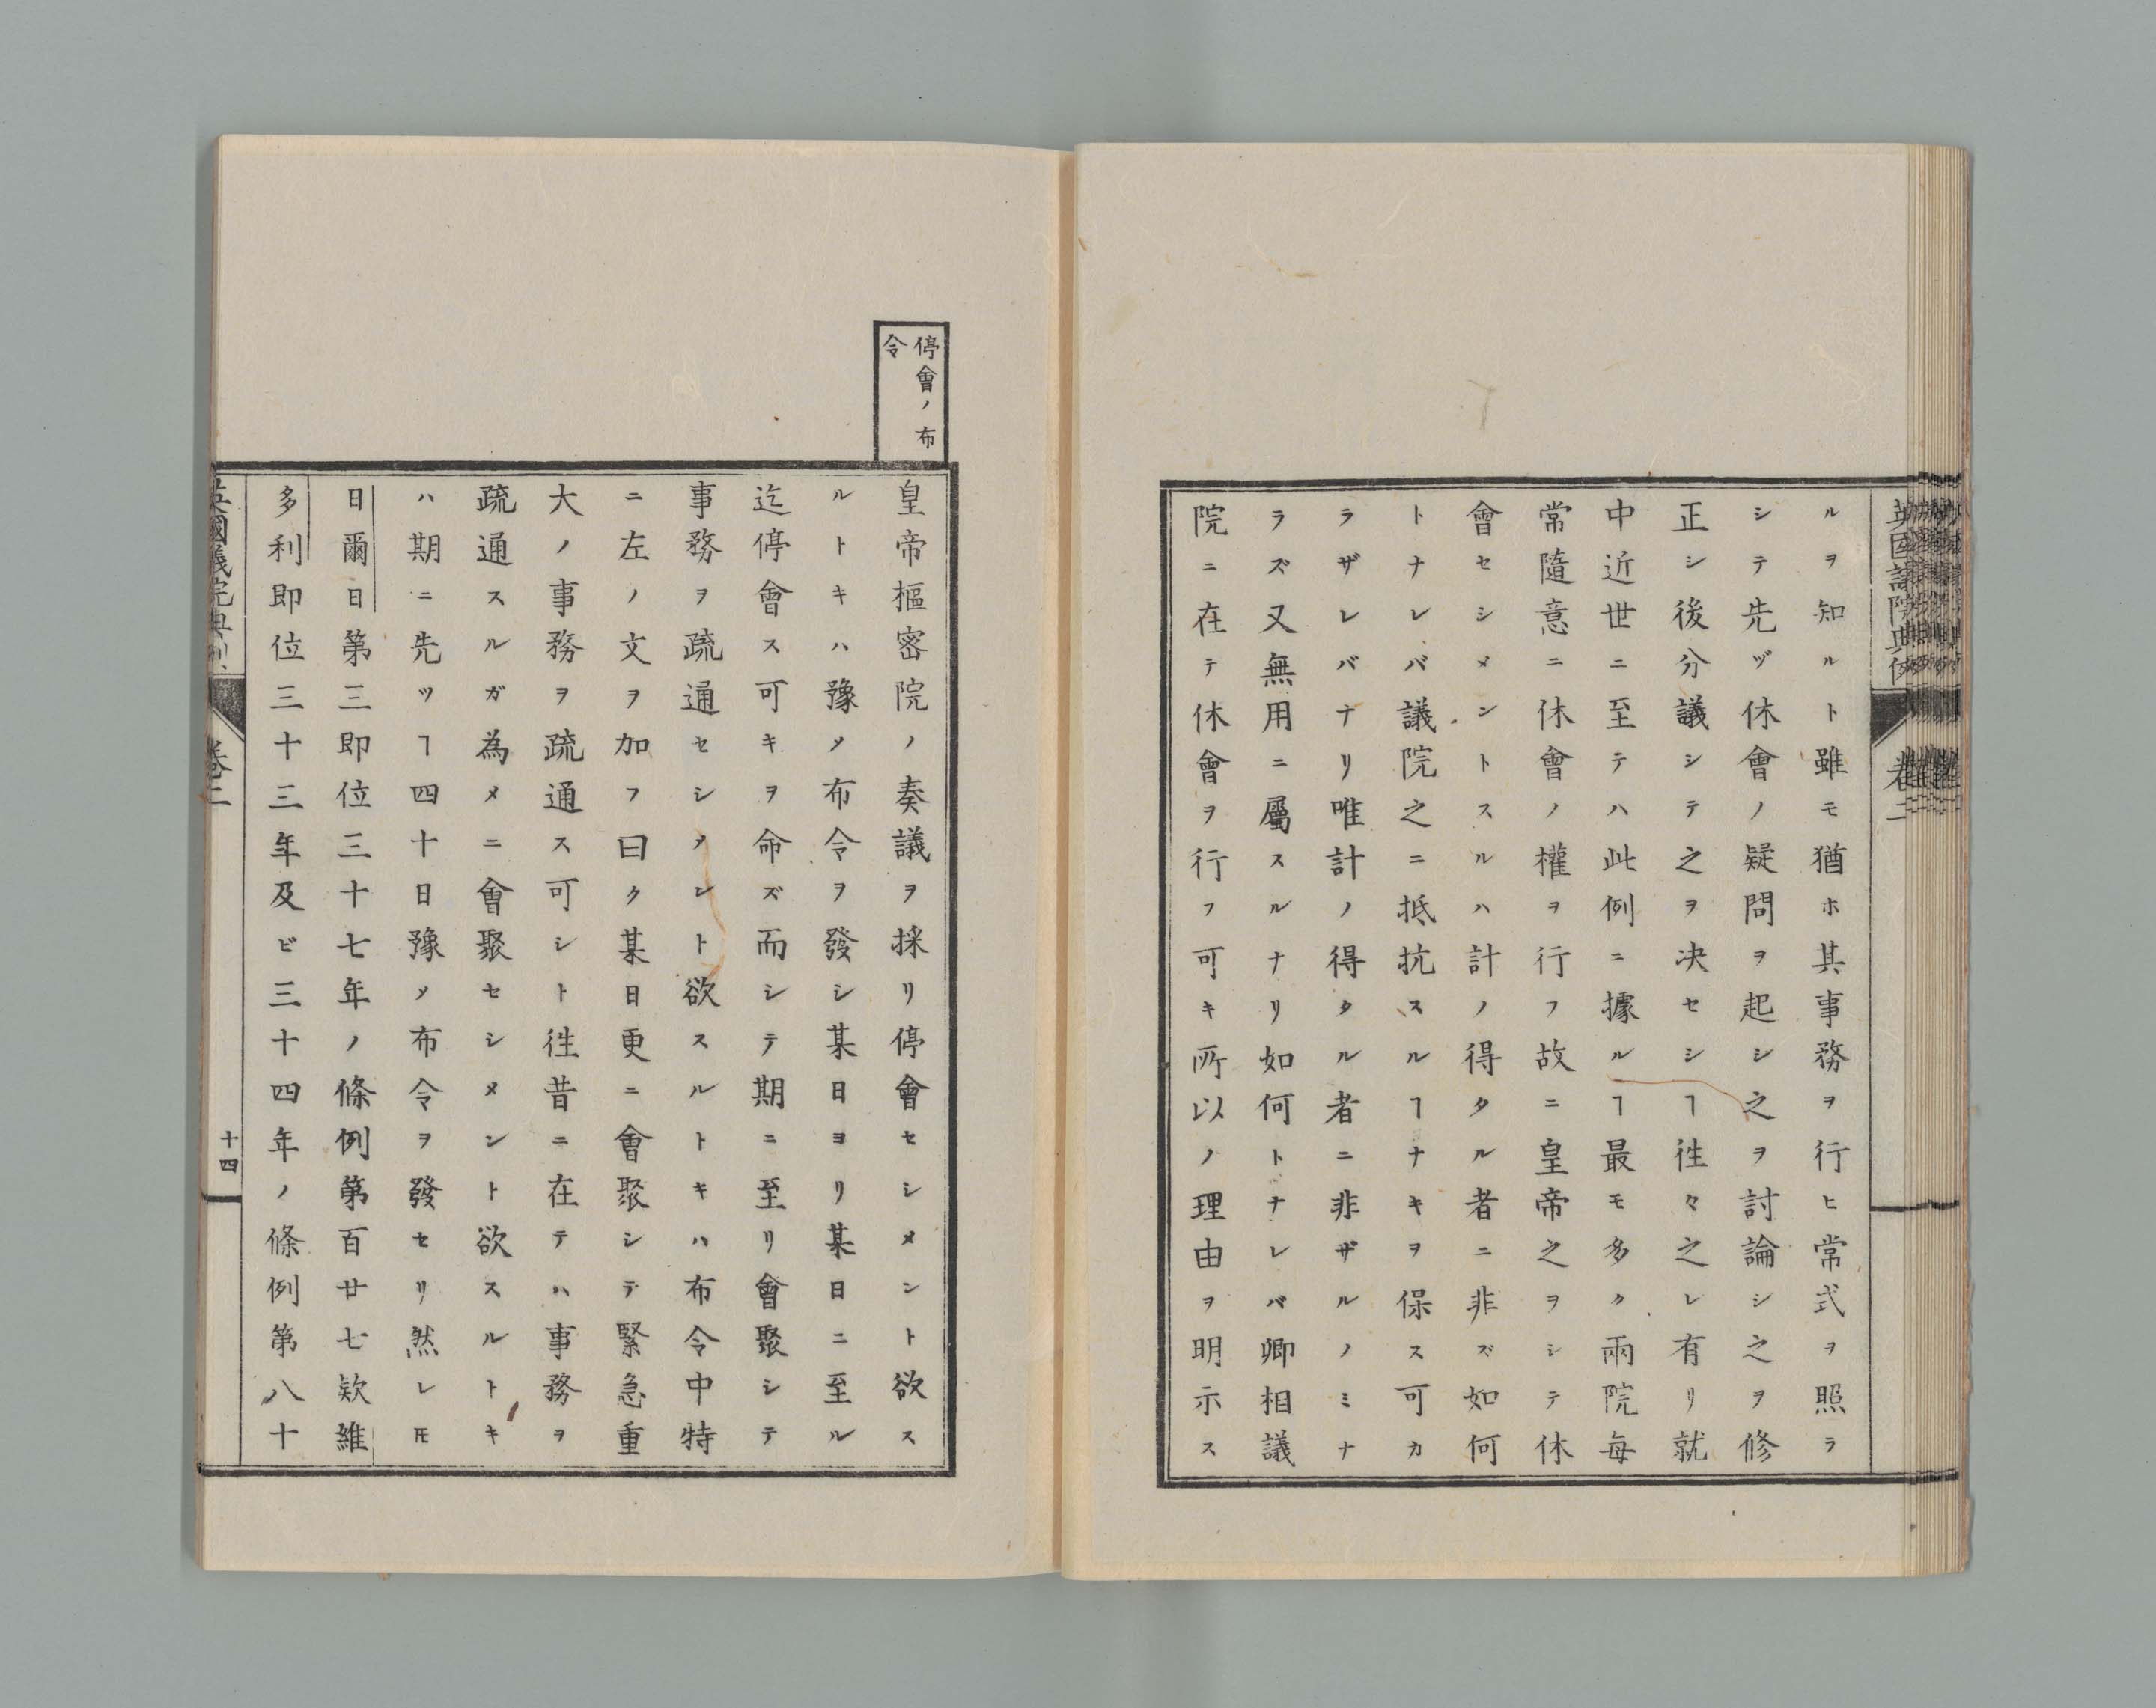 英國議院典例
卷二
ルヲ知ルト雖モ猶ホ其事務ヲ行ヒ常式ヲ照ラ
シテ先ヅ休會ノ疑問ヲ起シ之ヲ討論シ之ヲ修
正シ後分議シテ之ヲ决セシヿ徃々之レ有リ就
中近世ニ至テハ此例ニ據ルヿ最モ多ク兩院每
常隨意ニ休會ノ權ヲ行フ故ニ皇帝之ヲシテ休
會セシメントスルハ計ノ得タル者ニ非ズ如何
トナレバ議院之ニ抵抗スルヿナキヲ保ス可カ
ラザレバナリ唯計ノ得タル者ニ非ザルノミナ
ラズ又無用ニ屬スルナリ如何トナレバ卿相議
院ニ在テ休會ヲ行フ可キ所以ノ理由ヲ明示ス
停會ノ布
令
皇帝樞密院ノ奏議ヲ採リ停會セシメント欲ス
ルトキハ豫メ布令ヲ發シ某日ヨリ某日ニ至ル
迄停會ス可キヲ命ズ而シテ期ニ至リ會聚シテ
事務ヲ疏通セシメント欲スルトキハ布令中特
ニ左ノ文ヲ加フ曰ク某日更ニ會聚シテ緊急重
大ノ事務ヲ疏通ス可シト徃昔ニ在テハ事務ヲ
疏通スルガ為メニ會聚セシメント欲スルトキ
ハ期ニ先ツヿ四十日豫メ布令ヲ發セリ然レ𪜈
日爾日第三即位三十七年ノ條例第百廿七欵維
多利即位三十三年及ビ三十四年ノ條例第八十
英國議院典例
卷二
十四